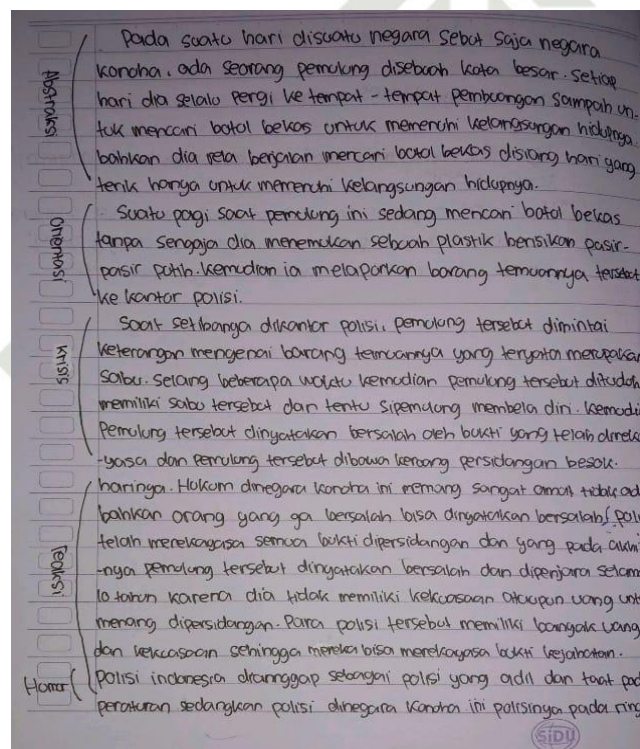 Pada suatu hari disuatu negara sebut saja negara
konoha, ada seorang pemulung disebuah kota besar. Setiap
hari dia selalu pergi ke tempat-tempat pembuangan sampah un-
tuk mencari botol bekas untuk memenuhi kelangsungan hidupnya.
bahkan dia rela berjalan mencari botol bekas disiang hari yang
terik hanya untuk memenuhi kelangsungan hidupnya.
Abstraksi
Suatu pagi saat pemulung ini sedang mencari botol bekas
tanpa sengaja dia menemukan sebuah plastik berisikan pasir-
pasir putih. Kemudian ia melaporkan barang temuannya tersebut
ke kantor polisi.
Orientasi
Saat setibanya dikantor polisi, pemulung tersebut dimintai
keterangan mengenai barang temuannya yang ternyata merupakan
sabu. Selang beberapa waktu kemudian pemulung tersebut dituduh
memiliki sabu tersebut dan tentu sipemulung membela diri. Kemudi
Pemulung tersebut dinyatakan bersalah oleh bukti yang telah direka
-yasa dan pemulung tersebut dibawa keruang persidangan besok.
Krisis
harinya. Hukum dinegara konoha ini memang sangat amat tidak ad
bahkan orang yang ga bersalah bisa dinyatakan bersalah, pol
telah merekayasa semua bukti dipersidangan dan yang pada akhi
-nya pemulung tersebut dinyatakan bersalah dan dipenjara selam
10 tahun karena dia tidak memiliki kekuasaan ataupun uang unt
menang dipersidangan. Para polisi tersebut memiliki banyak uang
dan kekuasaan sehingga mereka bisa merekayasa bukti kejahatan.
Reaksi
Polisi indonesia dianggap sebagai polisi yang adil dan taat pad
peraturan sedangkan polisi dinegara konoha ini polisinya pada ring
SIDU